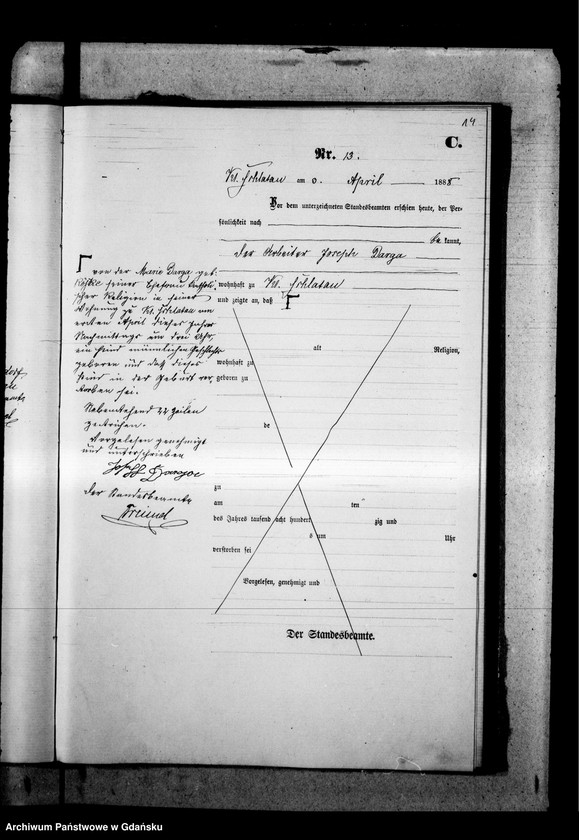 14
C.
Nr. 13.
Kl. Schlatau am April 1888
Vor dem unterzeichneten Standesbeamten erschien heute, der Per-
sönlichkeit nach
be kannt,
der Arbeiter Joseph Darga
wohnhaft zu Kl. Schlatau
und zeigte an, daß
von der Marie Darga geb.
seiner Ehefrau katholi
scher Religion in seiner
Wohnung zu Kl. Schlatau am
ersten April dieses Jahres
Nachmittags um drei Uhr,
ein Kind männlichen Geschlechts
geboren und daß dieses
Kind in der Geburt ver
storben sei.
Nebenstehend 22 Zeilen
gestrichen.
Vorgelesen genehmigt
und unterschrieben
Josef Darga
Der Standesbeamte
alt Religion,
wohnhaft zu
geboren zu
de
zu
am ten
des Jahres tausend acht hundert zig und
s um Uhr
verstorben sei
Vorgelesen, genehmigt und
Der Standesbeamte.
Archiwum Państwowe w Gdańsku